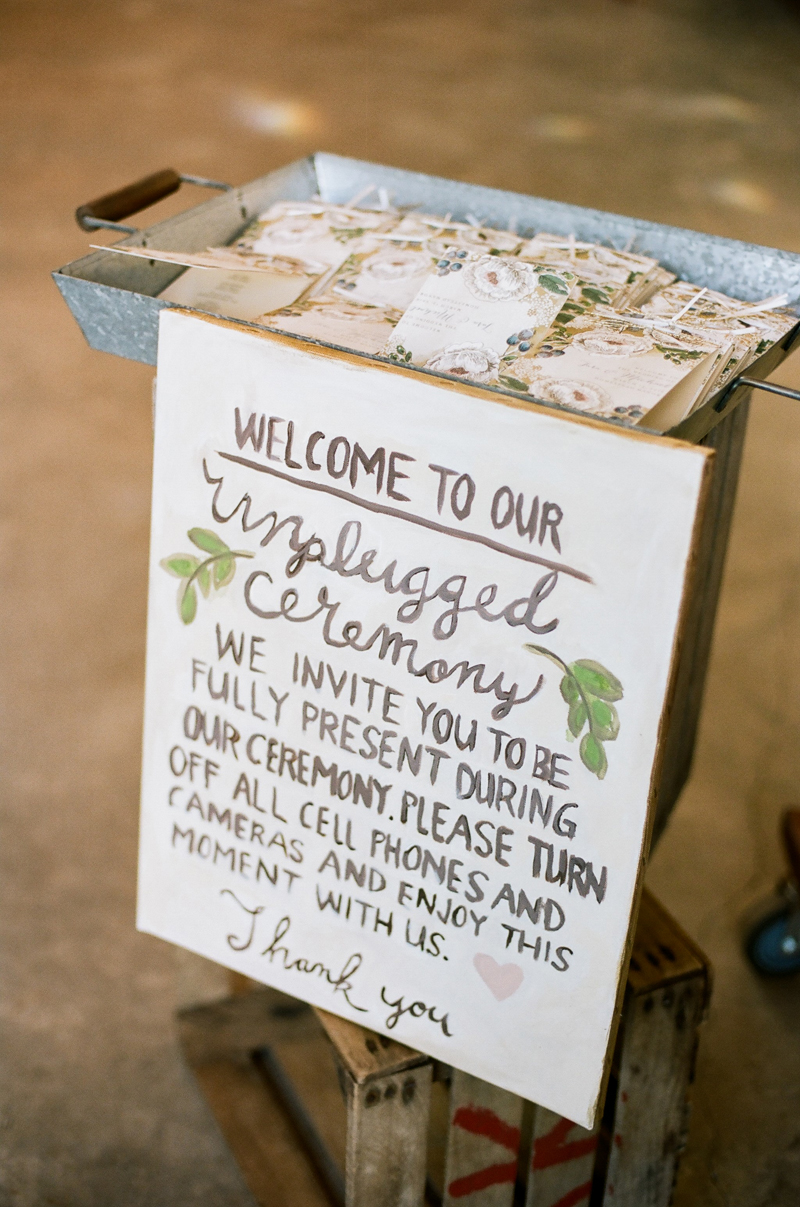 WELCOME TO OUR
unplugged
ceremony
WE INVITE YOU TO BE
FULLY PRESENT DURING
OUR CEREMONY. PLEASE TURN
OFF ALL CELL PHONES AND
CAMERAS AND ENJOY THIS
MOMENT WITH US.
Thank you